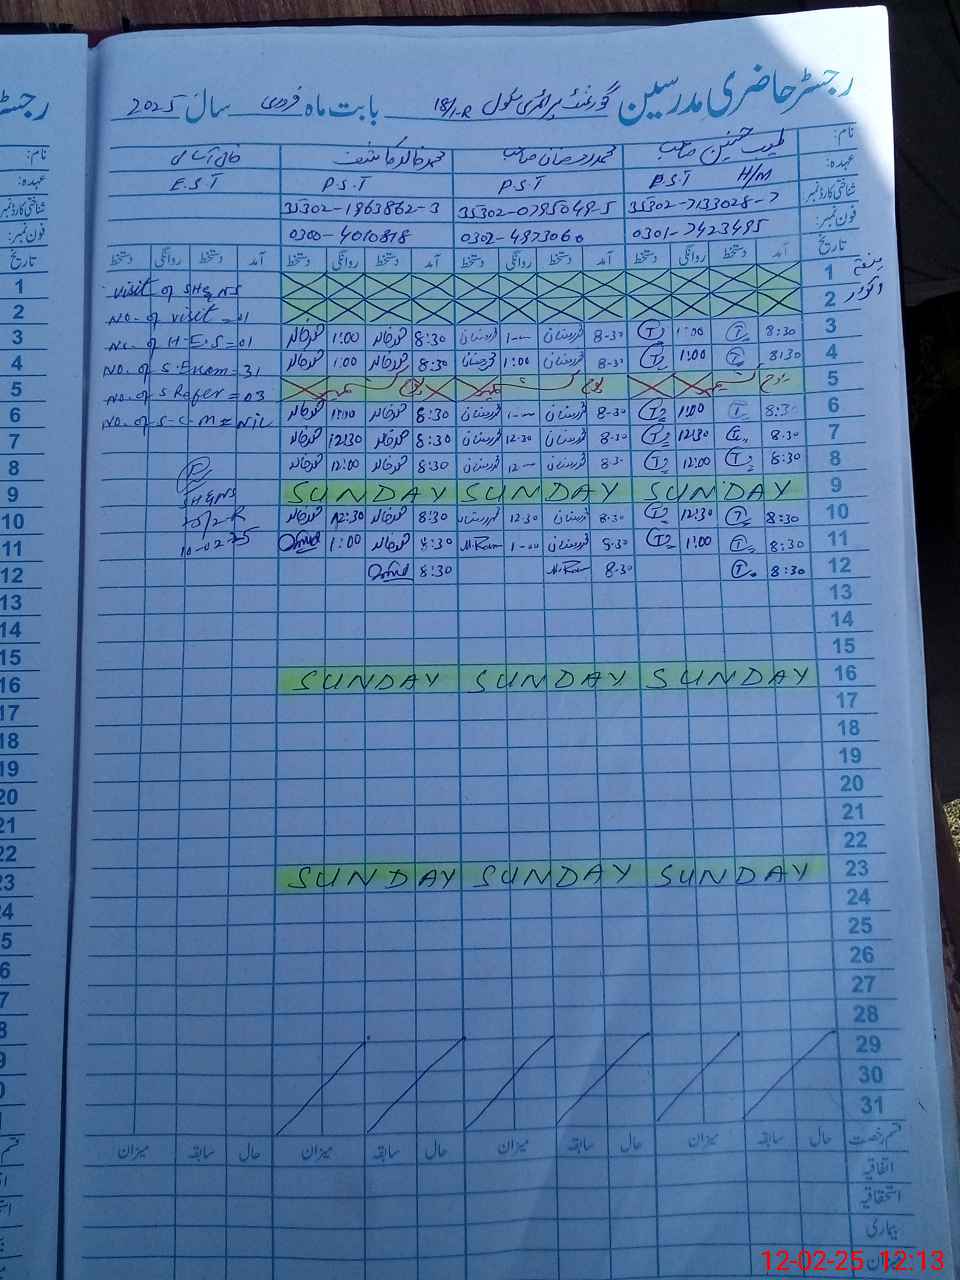 رجسٹر حاضری مدرسین گورنمنٹ پرائمری سکول 18/1-R بابت ماہ فروری سال 2025
نام: طیب حسنین صاحب محمد رمضان صاحب محمد خالد کاشف خالی آسامی
عہدہ: P.S.T H/M P.S.T P.S.T E.S.T
شناختی کارڈ نمبر 35302-7133028-7 35302-0795049-5 35302-1963862-3
فون نمبر: 0301-7423495 0302-4973060 0300-4010818
تاریخ آمد دستخط روانگی دستخط آمد دستخط روانگی دستخط آمد دستخط روانگی دستخط آمد دستخط روانگی دستخط
1 visit of SH&NS
2 No. of visit = 01
3 8:30 1:00 8-30 محمد رمضان 1-00 محمد رمضان 8:30 محمد خالد 1:00 محمد خالد No. of H.E.S = 01
4 8:30 1:00 8-30 محمد رمضان 1:00 محمد رمضان 8:30 محمد خالد 1:00 محمد خالد No. of S.Exam = 31
5 یوم کشمیر یوم یکجہتی کشمیر No. of S Refer = 03
6 8:30 1:00 8-30 محمد رمضان 1-00 محمد رمضان 8:30 محمد خالد 1:00 محمد خالد No. of S-C-M = NIL
7 8:30 12:30 8-30 محمد رمضان 12-30 محمد رمضان 8:30 محمد خالد 12:30 محمد خالد
8 8:30 12:00 8-30 محمد رمضان 12-00 محمد رمضان 8:30 محمد خالد 12:00 محمد خالد
9 SUNDAY SUNDAY SUNDAY SH&NS
10 8:30 12:30 8-30 محمد رمضان 12-30 محمد رمضان 8:30 محمد خالد 12:30 محمد خالد
11 8:30 1:00 8-30 محمد رمضان 1-00 M.Ram 8:30 محمد خالد 1:00 10-02-25
12 8:30 8-30 M.Ram 8:30
13
14
15
16 SUNDAY SUNDAY SUNDAY
17
18
19
20
21
22
23 SUNDAY SUNDAY SUNDAY
24
25
26
27
28
29
30
31
قسم رخصت حال سابقہ میزان حال سابقہ میزان حال سابقہ میزان حال سابقہ میزان
اتفاقیہ
استحقاقیہ
بیماری
میزان
12-02-25 12:13